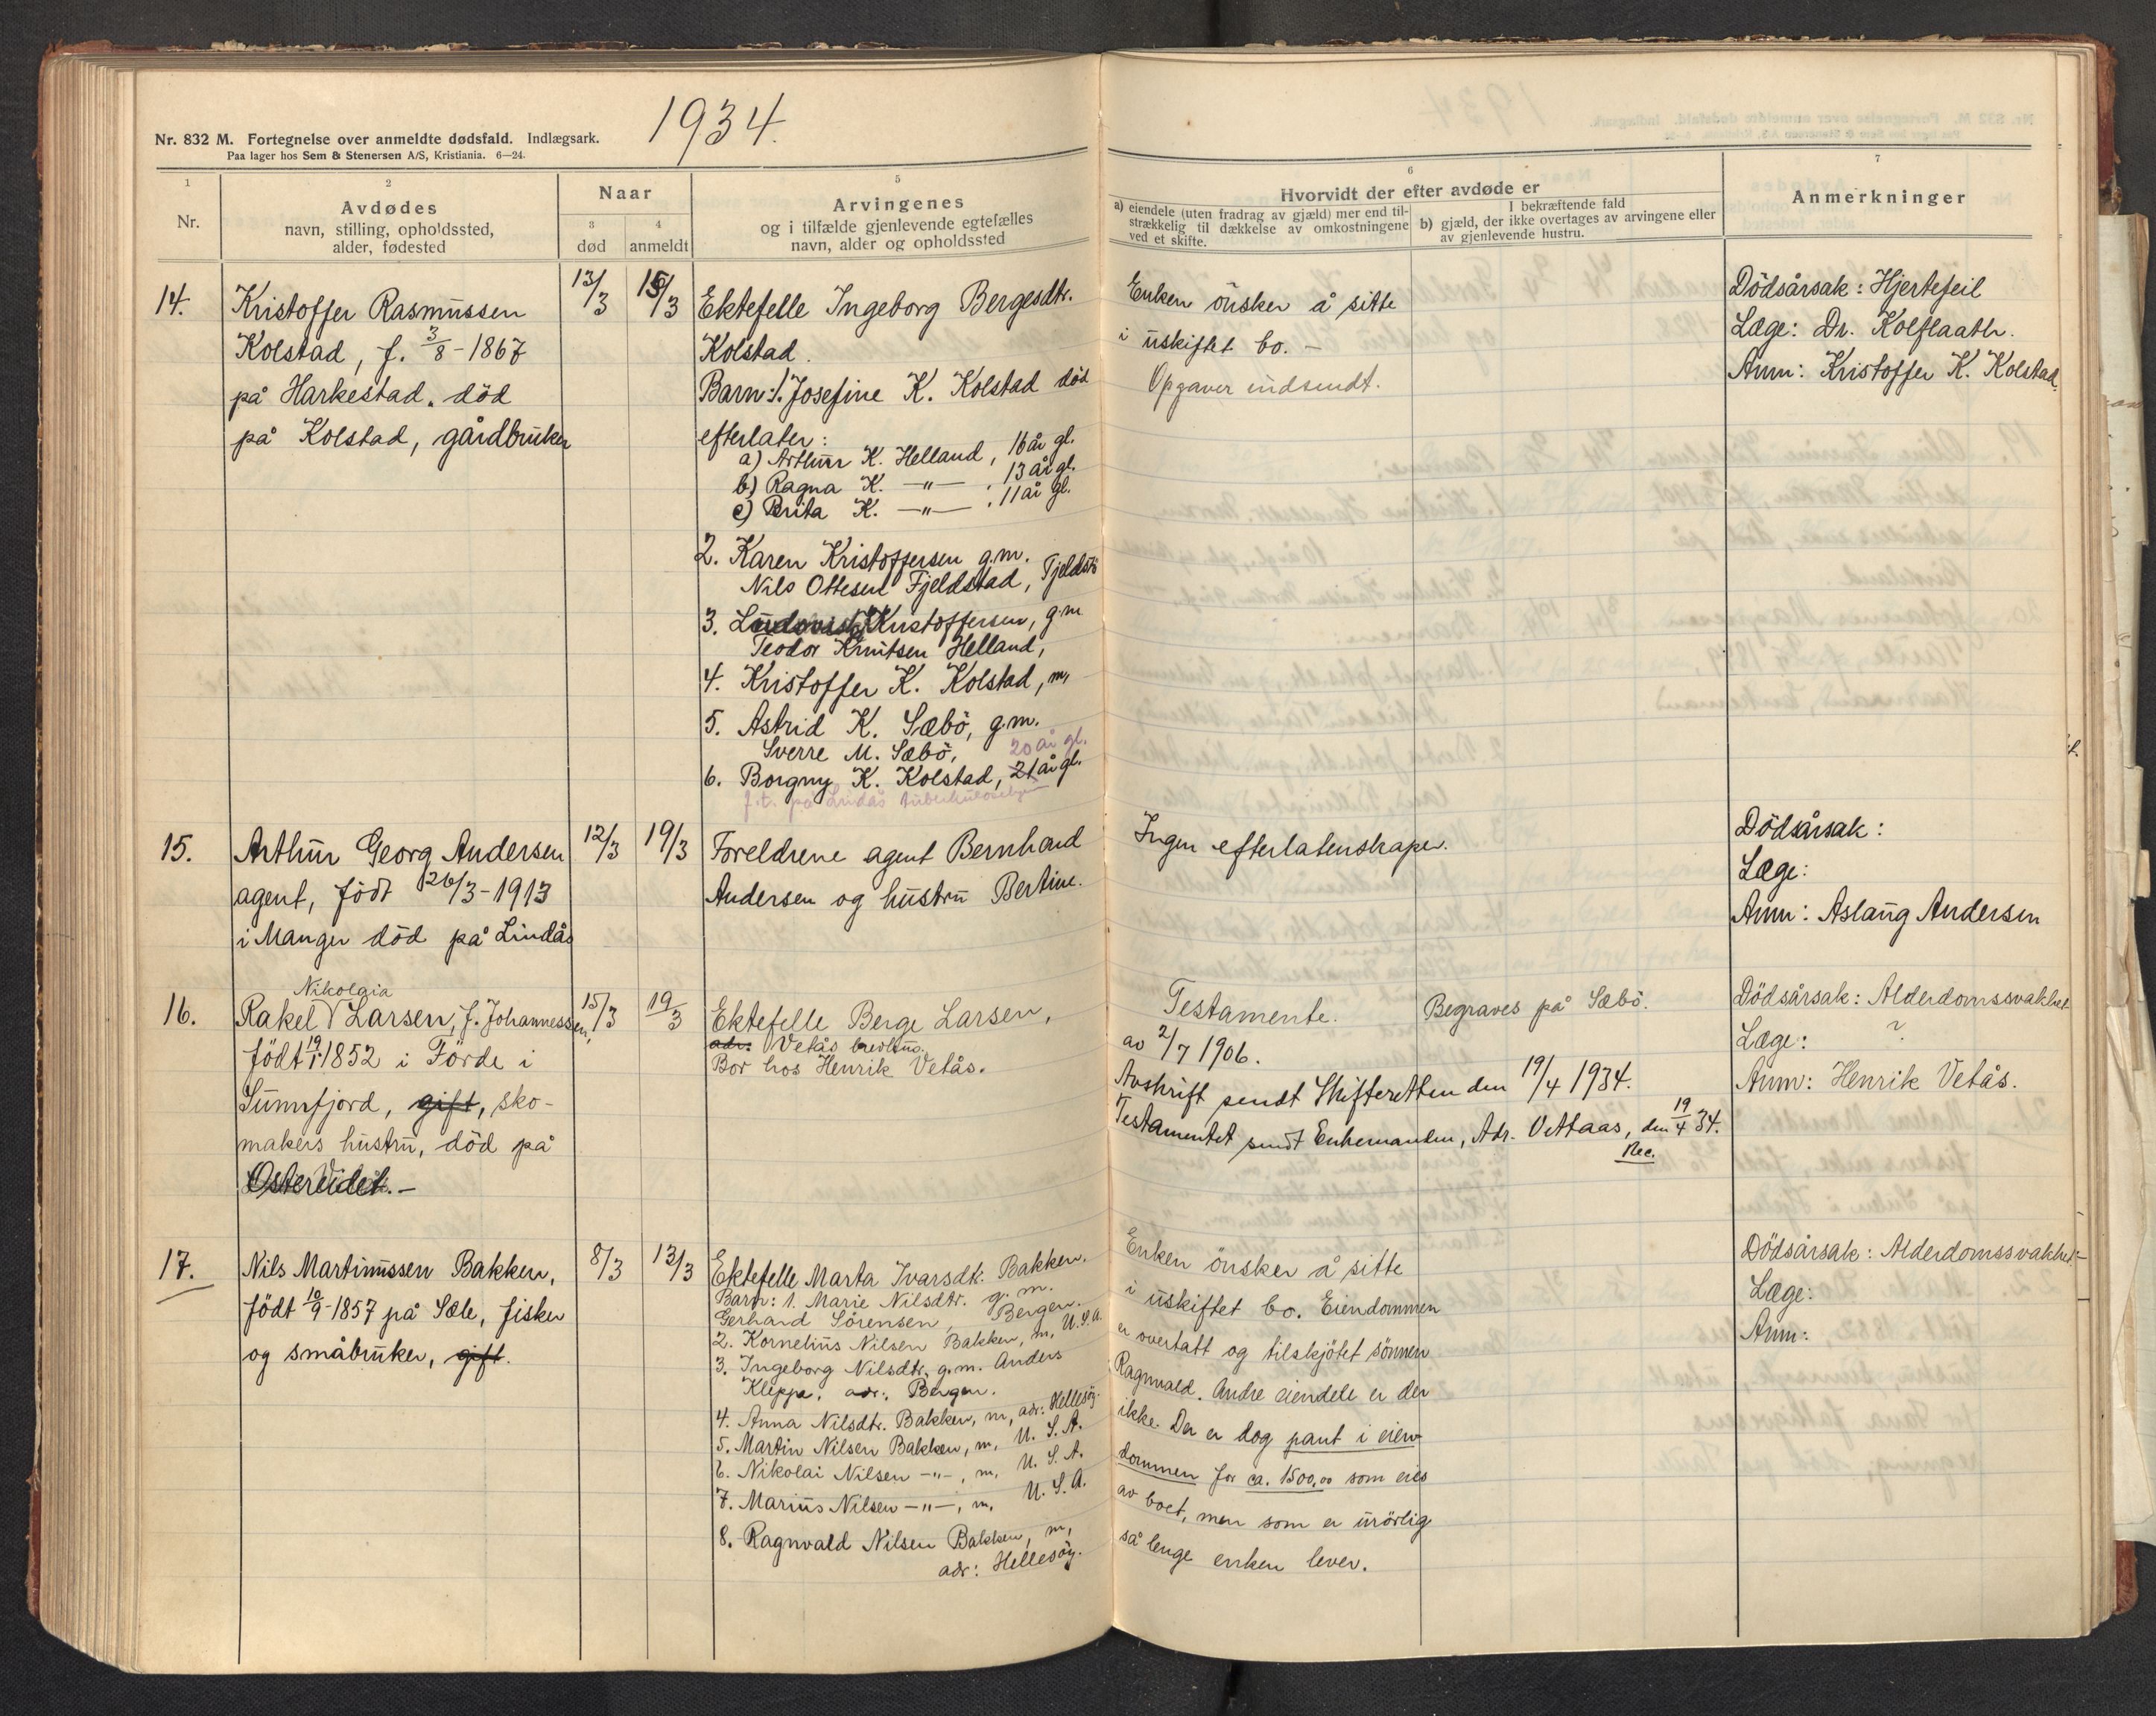 1934.
Nr. 832 M. Fortegnelse over anmeldte dødsfald. Indlægsark.
Paa lager hos Sem & Stenersen A/S, Kristiania. 6—24.
1
Nr.
2
Avdødes
navn, stilling, opholdssted,
alder, fødested
Naar
3
død
4
anmeldt
5
Arvingenes
og i tilfælde gjenlevende egtefælles
navn, alder og opholdssted
6
Hvorvidt der efter avdøde er
a) eiendele (uten fradrag av gjæld) mer end til-
strækkelig til dækkelse av omkostningene
ved et skifte.
I bekræftende fald
b) gjæld, der ikke overtages av arvingene eller
av gjenlevende hustru.
7
Anmerkninger
14.
Kristoffer Rasmussen
Kolstad, f. 3/8 - 1867
på Harkestad. död
på Kolstad, gårdbruker
13/3
15/3
Ektefelle Ingeborg Bergesdtr.
Kolstad.
Barn: 1. Josefine K. Kolstad död
efterlater:
a) Arthur K. Helland, 16 år gl.
b) Ragna K. —"— , 13 år gl.
c) Brita K. —"— , 11 år gl.
2. Karen Kristoffersen g.m.
Nils Ottesen Fjeldstad,
3. Kristoffersen, g.m
Teodor Knutsen Helland,
4. Kristoffer K. Kolstad, m,
5. Astrid K. Sæbö, g.m.
Sverre M. Sæbö,
20 år gl.
6. Borgny K. Kolstad, 21 år gl.
f.t. på Lindås
Enken önsker å sitte
i uskiftet bo. —
Opgaver indsendt.
Dödsårsak: Hjertefeil
Læge: Dr. Kolflaath.
Anm: Kristoffer K. Kolstad.
15.
Arthur Georg Andersen
agent, födt 26/3 - 1913
i Manger död på Lindås
12/3
19/3
Foreldrene agent Bernhard
Andersen og hustru Bertine.
Ingen efterlatenskaper.
Dödsårsak:
Læge:
Anm: Aslaug Andersen
16.
Nikolaia
Rakel V Larsen, f. Johannessen,
födt 19/1 1852 i Förde i
Sunnfjord, gift, sko-
makers hustru, död på
Ostereidet. —
15/3
19/3
Ektefelle Berge Larsen,
adr: Vetås
Bor hos Henrik Vetås.
Testamente.
av 2/7 1906.
Avskrift sendt Skifteretten den 19/4 1934.
Testamentet sendt Enkemanden, Adr. Vettaas, den 19/4 34.
Rec.
Begraves på Sæbö.
Dödsårsak: Alderdomssvakhet
Læge: ?
Anm: Henrik Vetås.
17.
Nils Martinussen Bakken,
födt 10/9 - 1857 på Sæle, fisker
og småbruker, gift.
8/3
13/3
Ektefelle Marta Ivarsdtr. Bakken.
Barn: 1. Marie Nilsdtr. g.m.
Gerhard Sörensen, Bergen.
2. Kornelius Nilsen Bakken, m, U.S.A.
3. Ingeborg Nilsdtr. g.m. Anders
Kleppe, adr: Bergen.
4. Anna Nilsdtr. Bakken, m, adr: Hellesöy.
5. Martin Nilsen Bakken, m, U.S.A.
6. Nikolai Nilsen —"—, m, U.S.A.
7. Marius Nilsen —"—, m, U.S.A.
8. Ragnvald Nilsen Bakken, m,
adr: Hellesöy.
Enken önsker å sitte
i uskiftet bo. Eiendommen
er overtatt og tilskjötet sönnen
Ragnvald. Andre eiendele er der
ikke. Der er dog pant i eien-
dommen for ca. 1500,00 som eies
av boet, men som er urörlig
så lenge enken lever.
Dödsårsak: Alderdomssvakhet
Læge:
Anm: